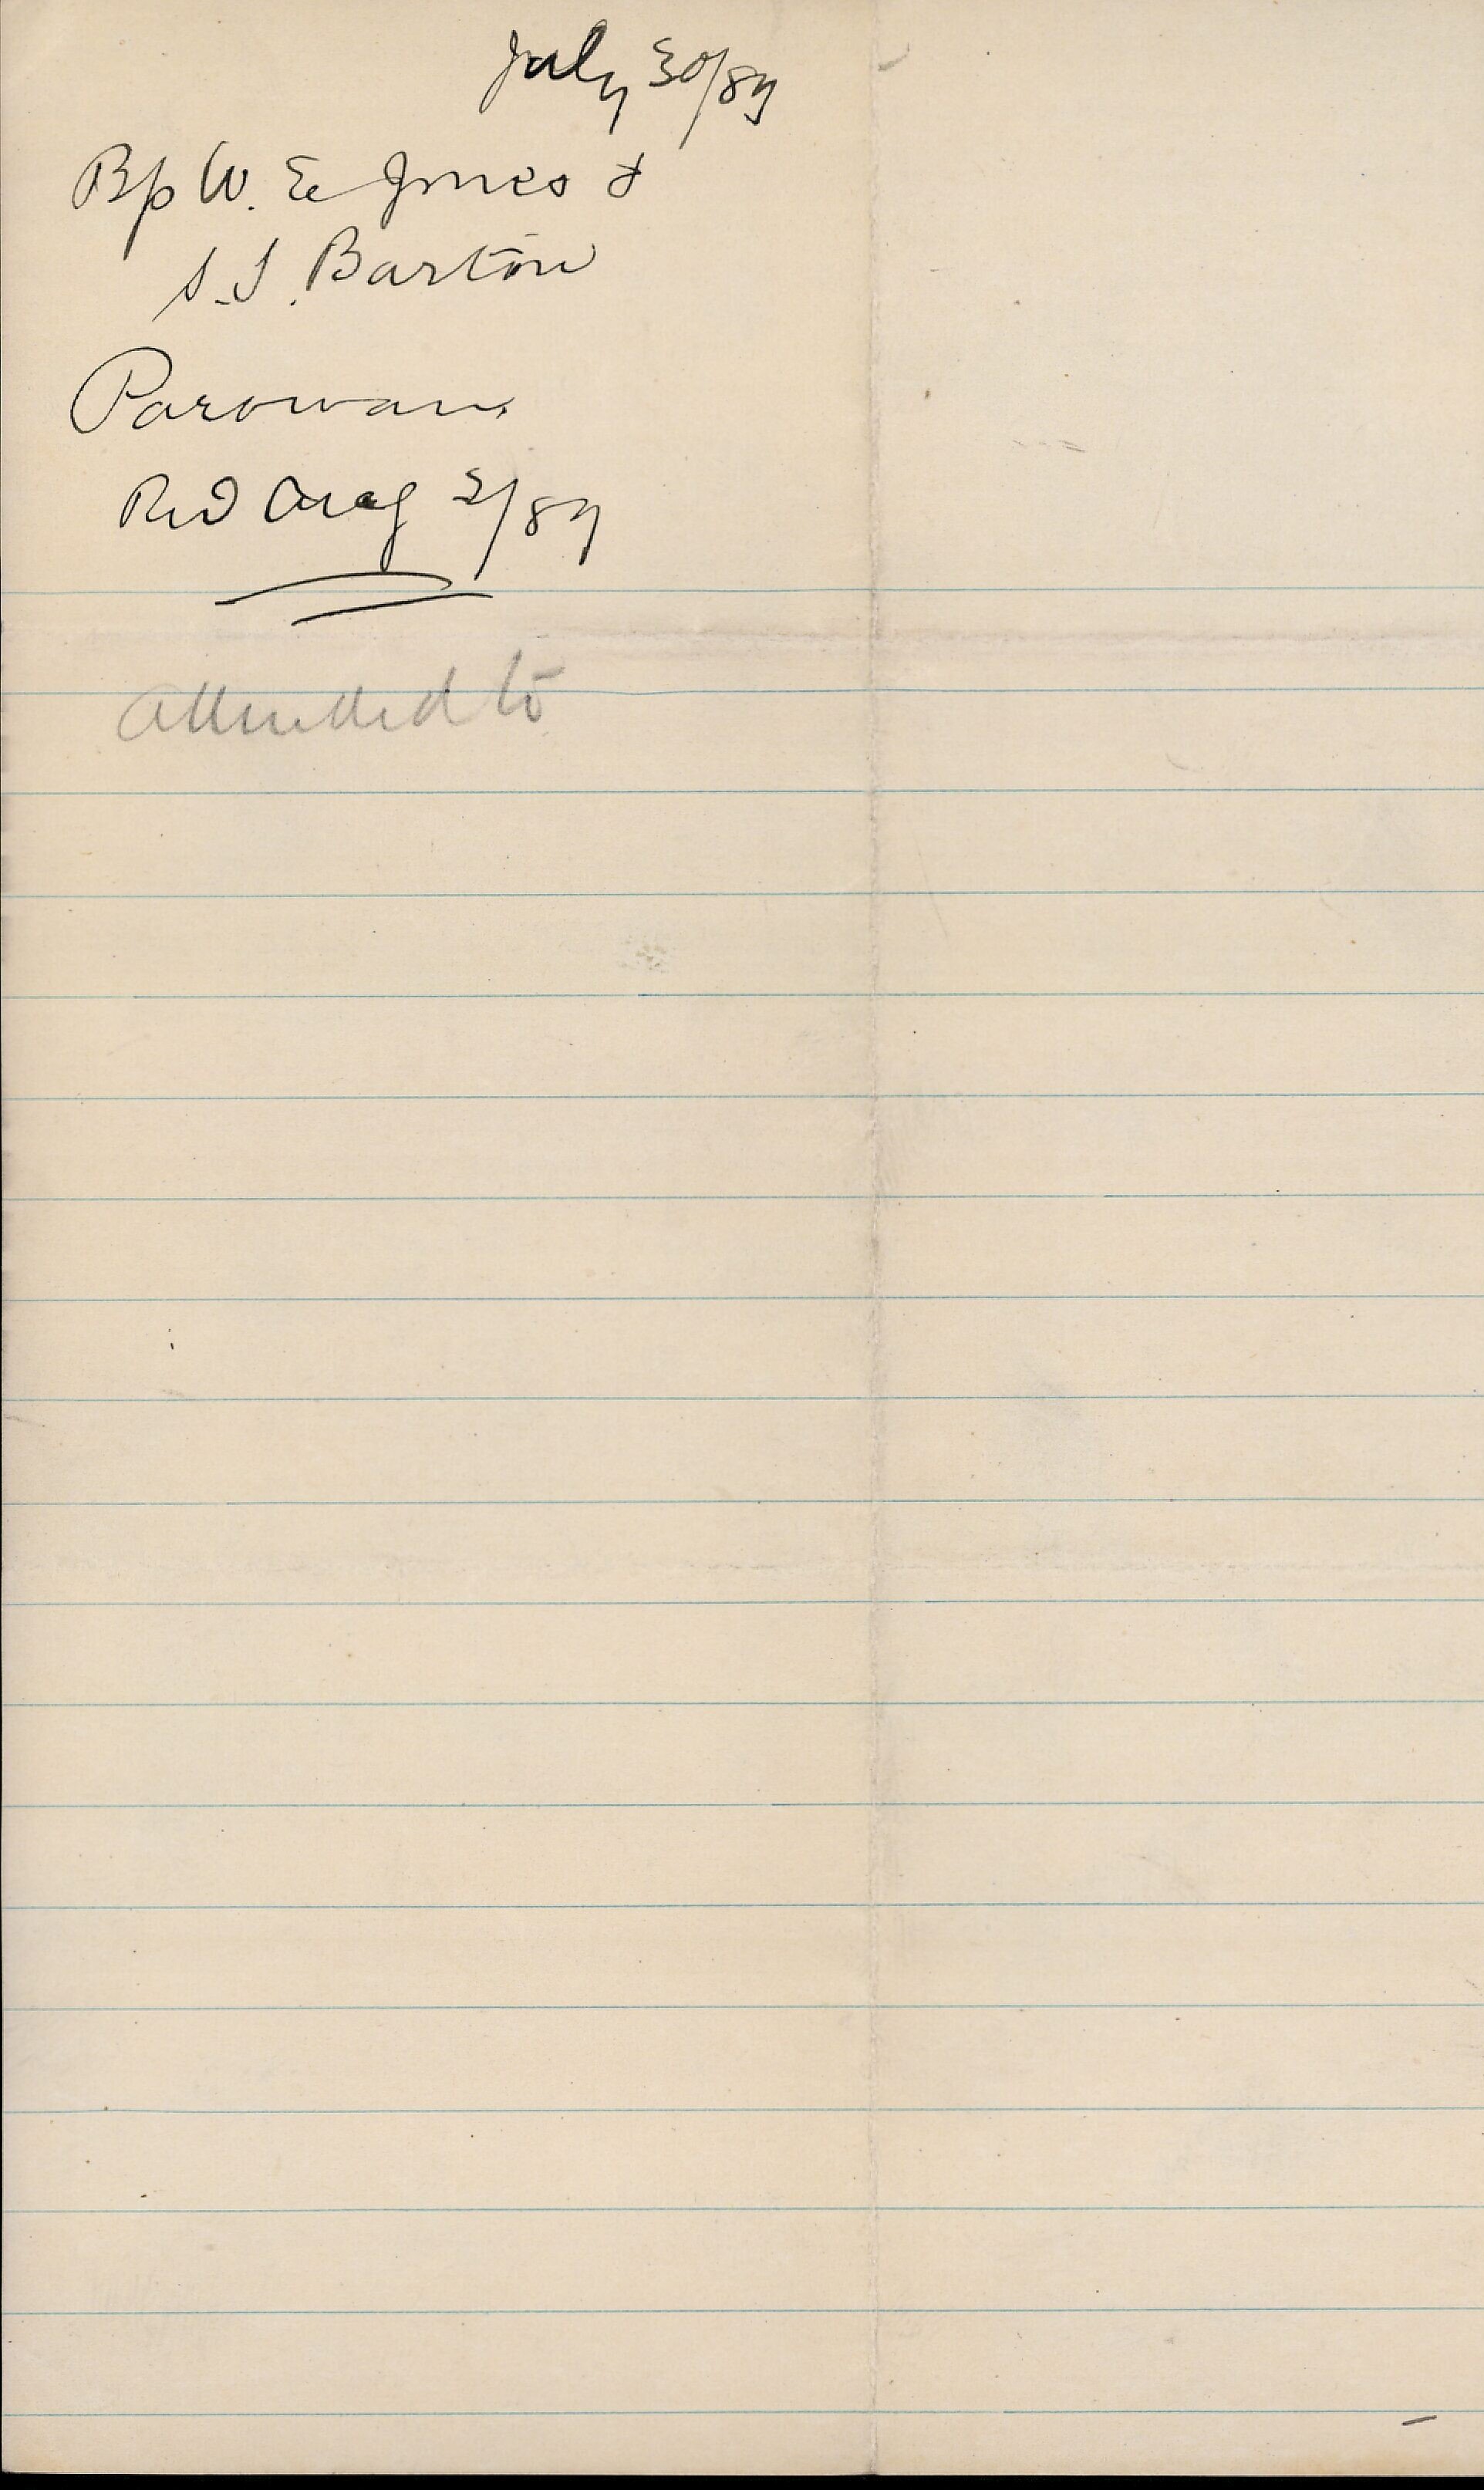 July 30/89
Bp W. E Jones &
S. S. Barton
Parowan
Rec'd Aug 2/89
attended to